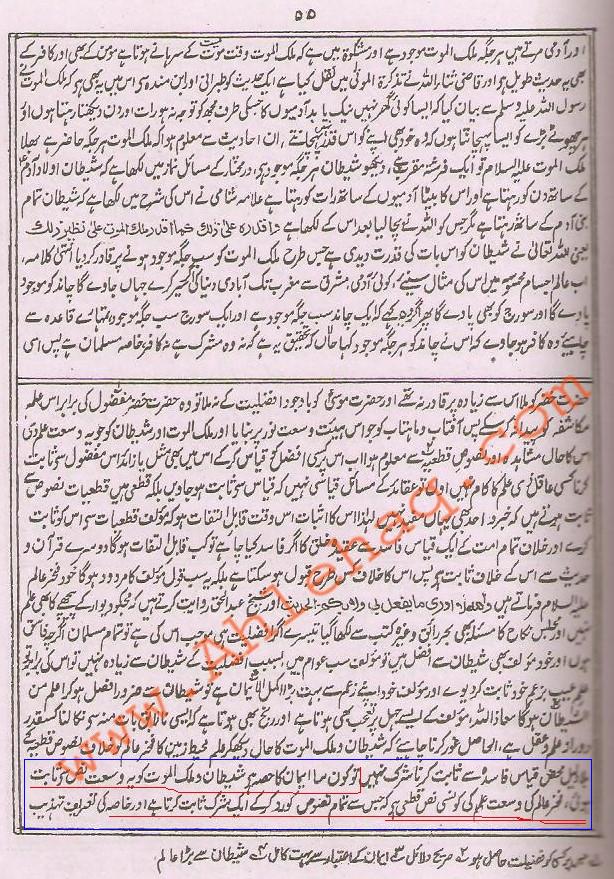 ۵۵
اور آدمی مرتے ہیں ہر جگہ ملک الموت موجود ہے اور مشکوٰۃ میں ہے کہ ملک الموت وقت موت میت کے سرہانے ہوتا ہے مومن کے بھی اور کافر کے
بھی یہ حدیث طویل ہے اور قاضی ثناء اللہ نے تذکرۃ الموتی میں نقل کیا ہے ایک حدیث کو طبرانی اور ابن مندہ سے اس میں یہ بھی ہے کہ ملک الموت نے
رسول اللہ علیہ وسلم سے بیان کیا کہ ایسا کوئی گھر نہیں نیک یا بد آدمیوں کا جسکی طرف مجھ کو توجہ نہ ہو رات اور دن دیکھتا رہتا ہوں اور
ہر چھوٹے بڑے کو ایسا پہچانتا ہوں کہ وہ خود بھی اپنے کو اس قدر نہیں پہچانتے، ان احادیث سے معلوم ہوا کہ ملک الموت ہر جگہ حاضر ہے بھلا
ملک الموت علیہ السلام تو ایک فرشتہ مقرب ہے، دیکھو شیطان ہر جگہ موجود ہے، درمختار کے مسائل نماز میں لکھا ہے کہ شیطان اولاد آدم
کے ساتھ دن کو رہتا ہے اور اس کا بیٹا آدمیوں کے ساتھ رات کو رہتا ہے علامہ شامی نے اس کی شرح میں لکھا ہے کہ شیطان تمام
بنی آدم کے ساتھ رہتا ہے مگر جس کو اللہ نے بچا لیا بعد اس کے لکھا ہے و اقدرہ علی ذلک کما اقدر ملک الموت علی نظیر ذلک
یعنی اللہ تعالیٰ نے شیطان کو اس بات کی قدرت دیدی ہے جس طرح ملک الموت کو سب جگہ موجود ہونے پر قادر کر دیا انتہی کلامہ،
اب عالم اجسام محسوسہ میں اس کی مثال سنیے، کوئی آدمی مشرق سے مغرب تک آبادی دنیا کی سیر کرے جہاں جاوے گا چاند کو موجود
پاوے گا اور سورج کو بھی پاوے گا پھر اگر وہ کہے کہ ایک چاند سب جگہ موجود ہے اور ایک سورج سب جگہ موجود، تمہارے قاعدہ سے
چاہیے وہ کافر ہو جاوے کہ اس نے چاند کو ہر جگہ موجود کہا حالانکہ تحقیق یہ ہے کہ نہ وہ مشرک ہے نہ کافر خاصہ مسلمان ہے پس اسی
حضرت خضر کو ملا اس سے زیادہ پر قادر نہ تھے اور حضرت موسیٰ کو باوجود افضلیت کے نہ ملا تو وہ حضرت خضر مفضول کی برابر اس علم
مکاشفہ کو پیدا نہ کر سکے پس آفتاب و ماہتاب کو جو اس ہیئت وسعت نور پر بنایا اور ملک الموت اور شیطان کو جو یہ وسعت علم دی
اس کا حال مشاہدہ اور نصوص قطعیہ سے معلوم ہوا اب اس پر کسی افضل کو قیاس کر کے اس میں بھی مثل یا زائد اس مفضول سے ثابت
کرنا کسی عاقل ذی علم کا کام نہیں اول تو عقائد کے مسائل قیاسی نہیں کہ قیاس سے ثابت ہو جاویں بلکہ قطعی ہیں قطعیات نصوص سے
ثابت ہوتے ہیں کہ خبر واحد بھی یہاں مفید نہیں لہذا اس کا اثبات اس وقت قابل التفات ہو کہ مؤلف قطعیات سے اس کو ثابت
کرے اور خلاف تمام امت کے ایک قیاس فاسد سے عقیدہ خلق کا اگر فاسد کیا چاہے تو کب قابل التفات ہوگا دوسرے قرآن و
حدیث سے اس کے خلاف ثابت ہے پس اس کا خلاف کس طرح قبول ہو سکتا ہے بلکہ یہ سب قول مؤلف کا مردود ہوگا خود فخر عالم
علیہ السلام فرماتے ہیں واللہ لا ادری ما یفعل بی ولا بکم الحدیث اور شیخ عبدالحق روایت کرتے ہیں کہ مجھ کو دیوار کے پیچھے کا بھی علم
نہیں اور مجلس نکاح کا مسئلہ بھی بحر رائق وغیرہ کتب سے لکھا گیا تیسرے اگر افضلیت ہی موجب اس کی ہے تو تمام مسلمان اگرچہ فاسق
ہوں اور خود مؤلف بھی شیطان سے افضل ہیں تو مؤلف سب عوام میں بسبب افضلیت کے شیطان سے زیادہ نہیں تو اس کی برابر تو
علم غیب بزعم خود ثابت کر دیوے اور مؤلف خود اپنے زعم سے بہت بڑا اکمل الایمان ہے تو شیطان سے ضرور افضل ہو کر اعلم من
الشیطان ہوگا معاذ اللہ مؤلف کے ایسے جہل پر تعجب بھی ہوتا ہے اور رنج بھی ہوتا ہے کہ ایسی نالائق بات منہ سے نکالنا کس قدر
دور از علم و عقل ہے، الحاصل غور کرنا چاہئے کہ شیطان و ملک الموت کا حال دیکھ کر علم محیط زمین کا فخر عالم کو خلاف نصوص قطعیہ کے
بلا دلیل محض قیاس فاسدہ سے ثابت کرنا شرک نہیں تو کون سا ایمان کا حصہ ہے شیطان و ملک الموت کو یہ وسعت نص سے ثابت
ہوئی، فخر عالم کی وسعت علم کی کونسی نص قطعی ہے کہ جس سے تمام نصوص کو رد کر کے ایک شرک ثابت کرتا ہے اور خاصہ کی تعریف تہذیب
لے جس پر کسی کو فضیلت حاصل ہو ۲ صریح دلائل ۳ ایمان کے اعتبار سے بہت کامل ۴ شیطان سے بڑا عالم
www.Ahlehaq.com